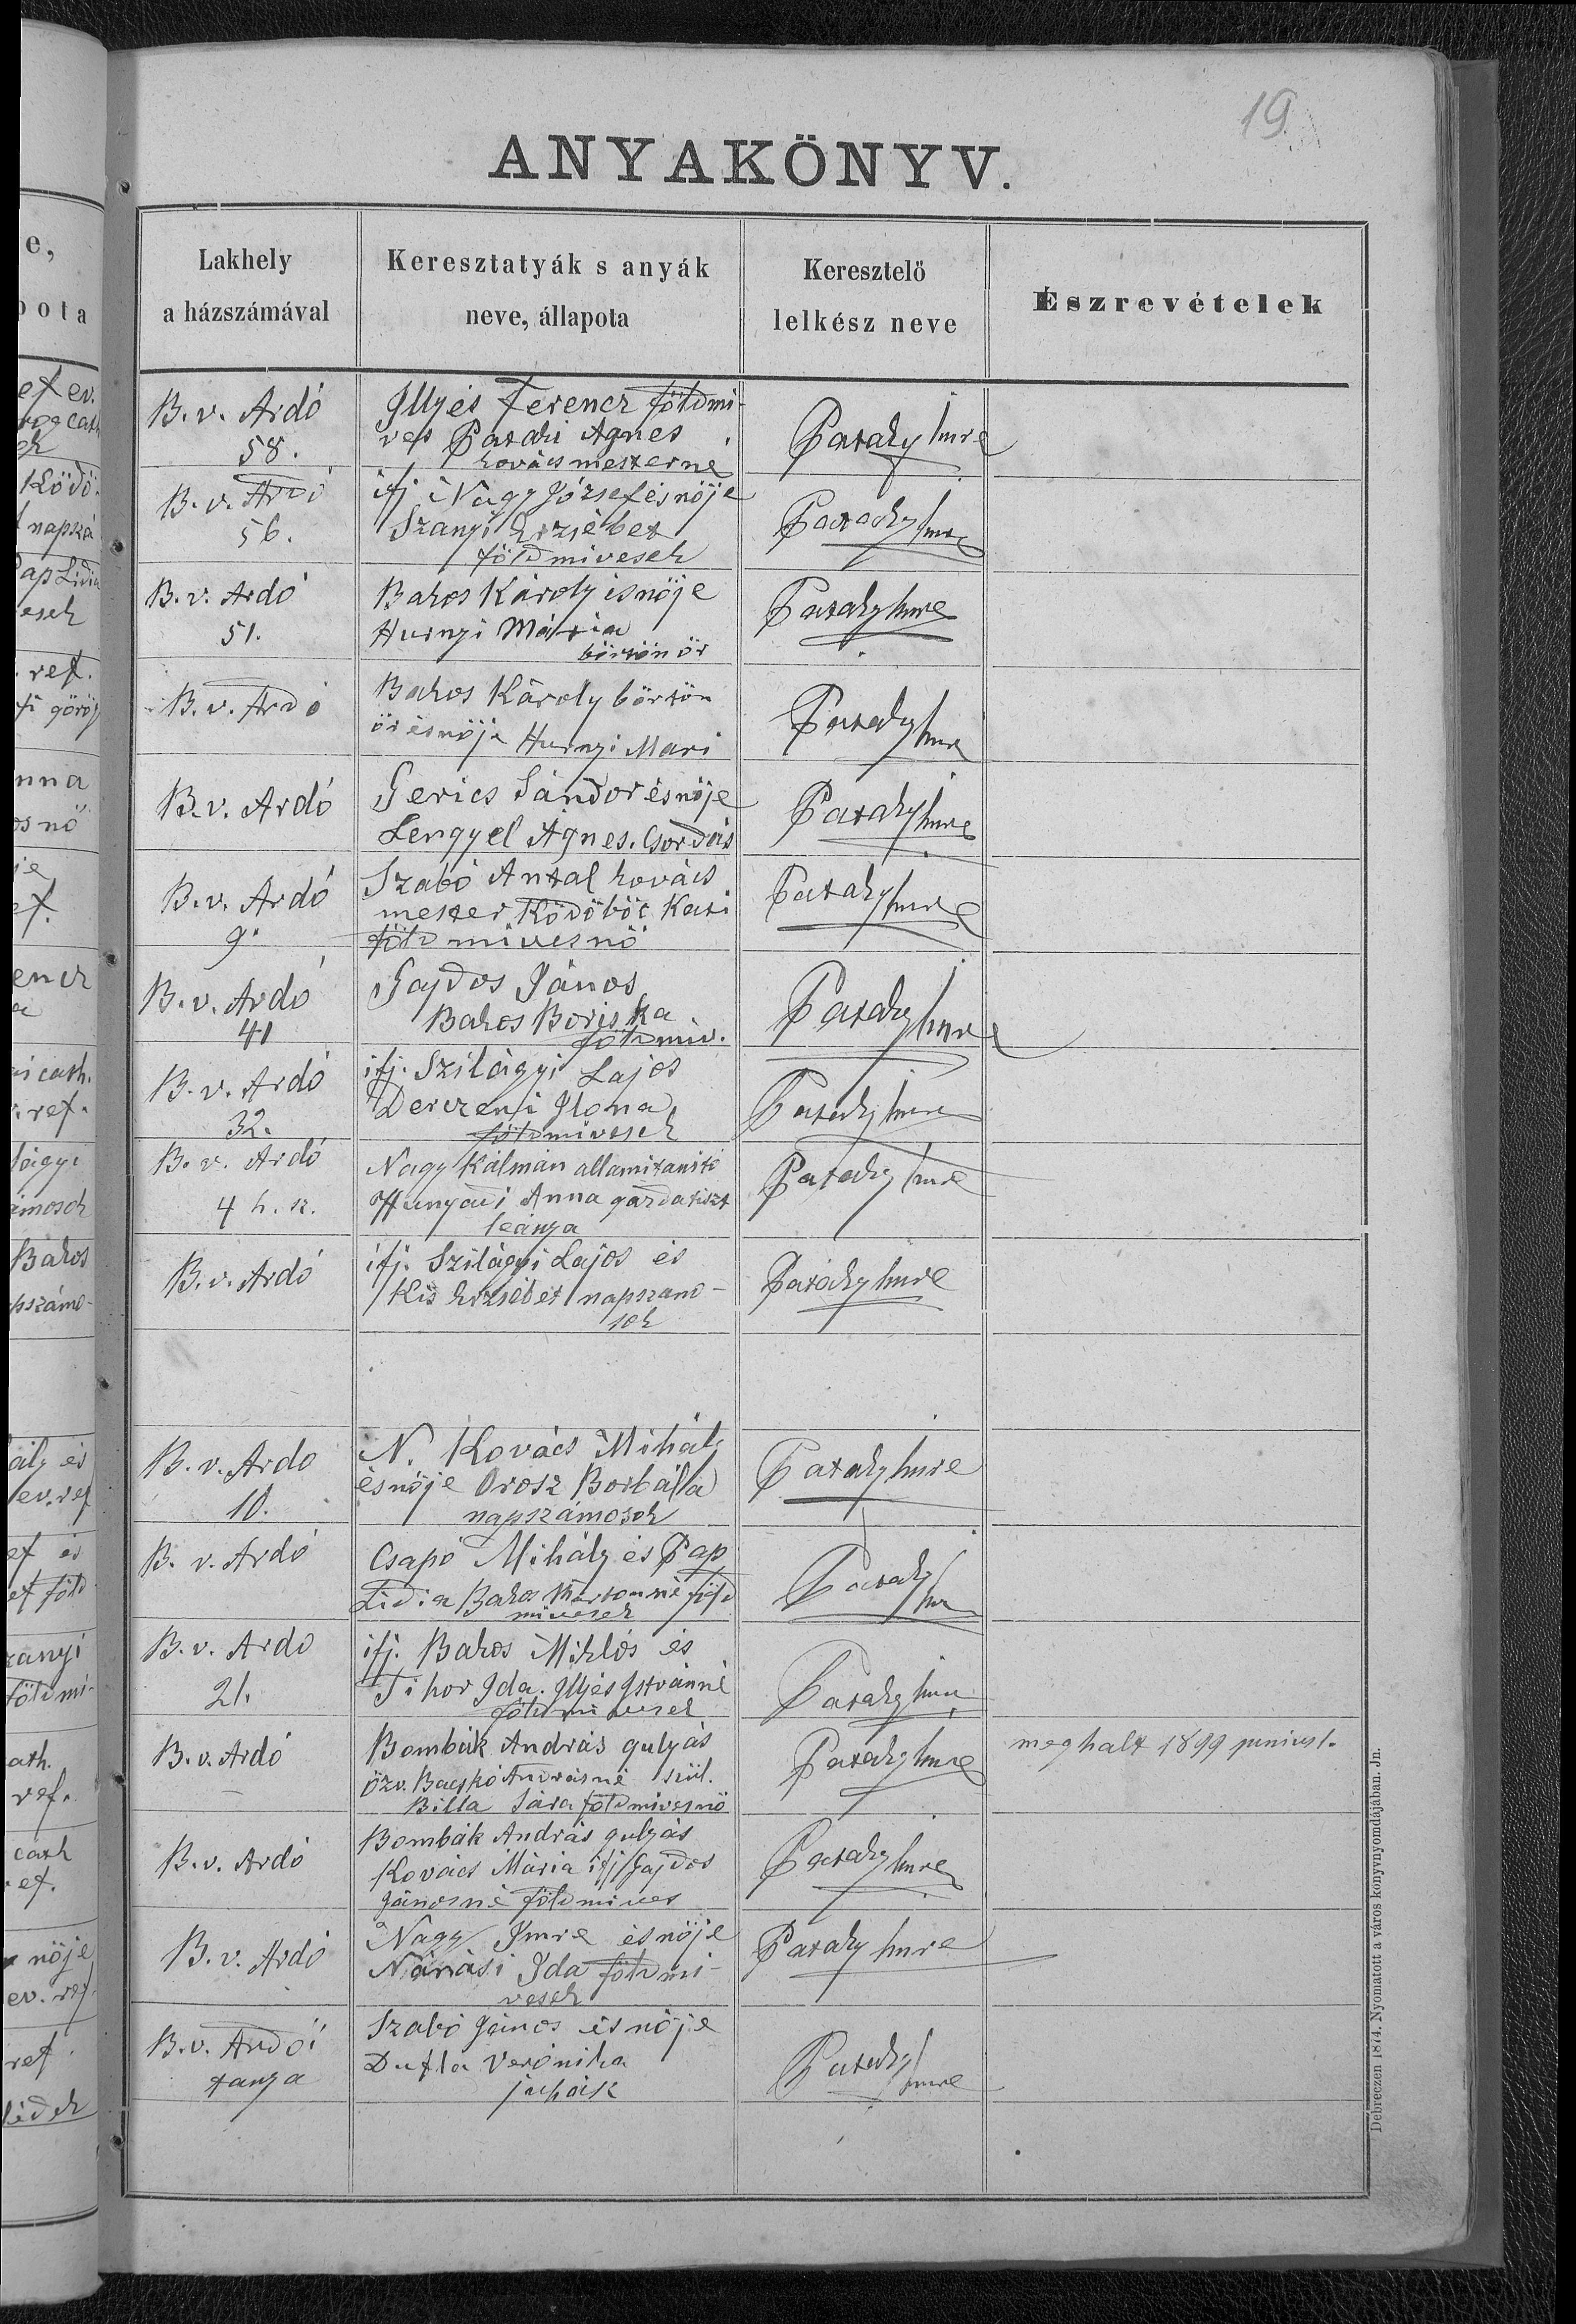 19
ANYAKÖNYV.
Lakhely
a házszámával
Keresztatyák s anyák
neve, állapota
Keresztelő
lelkész neve
Észrevételek
B. v. Ardó
58.
Illyés Ferencz földmi-
ves Pataki Agnes
kovácsmesterné
Pataky Imre
B. v. Ardó
56.
ifj. Nagy József és nője
Szanyi Erzsébet
földmivesek
Pataky Imre
B. v. Ardó
51.
Bakos Károly és nője
Hunyi Mária
börtön őr
Pataky Imre
B. v. Ardó
Bakos Károly börtön
őr és nője Hunyi Mari
Pataky Imre
B. v. Ardó
Gerics Sándor és nője
Lengyel Ágnes. Csordás
Pataky Imre
B. v. Ardó
9.
Szabó Antal kovács
mester Ködöböc Kati
földmivesnő
Pataky Imre
B. v. Ardó
41
Gajdos János
Bakos Boriska
földmiv.
Pataky Imre
B. v. Ardó
32.
ifj. Szilágyi Lajos
Derczeni Ilona
földmivesek
Pataky Imre
B. v. Ardó
4 h. sz.
Nagy Kálmán allamitanító
Hunyadi Anna gazdatiszt
leánya
Pataky Imre
B. v. Ardó
ifj. Szilágyi Lajos és
Kis Erzsébet napszámo-
sok
Pataky Imre
B. v. Ardo
10.
N. Kovács Mihály
és nője Orosz Borbálla
napszámosok
Pataky Imre
B. v. Ardó
Csapó Mihály és Pap
Lidia Bakos Mártonné föld
mivesek
Pataky Imre
B. v. Ardo
21.
ifj. Bakos Miklós és
Tihor Ida. Illyés Istvánné
földmivesek
Pataky Imre
B. v. Ardó
Bombák András gulyás
özv. Bacskó Andrásné szül.
Billa Sára földmivesnő
Pataky Imre
meghalt 1899 junius 1.
B. v. Ardó
Bombák András gulyás
Kovács Mária ifj Gajdos
Jánosné földmives
Pataky Imre
B. v. Ardó
Nagy Imre és nője
Nánási Ida földmi-
vesek
Pataky Imre
B. v. Ardói
tanya
Szabó János és nője
Dufla Verónika
juhák
Pataky Imre
Debreczen 1874. Nyomatott a város könyvnyomdájában. Jn.